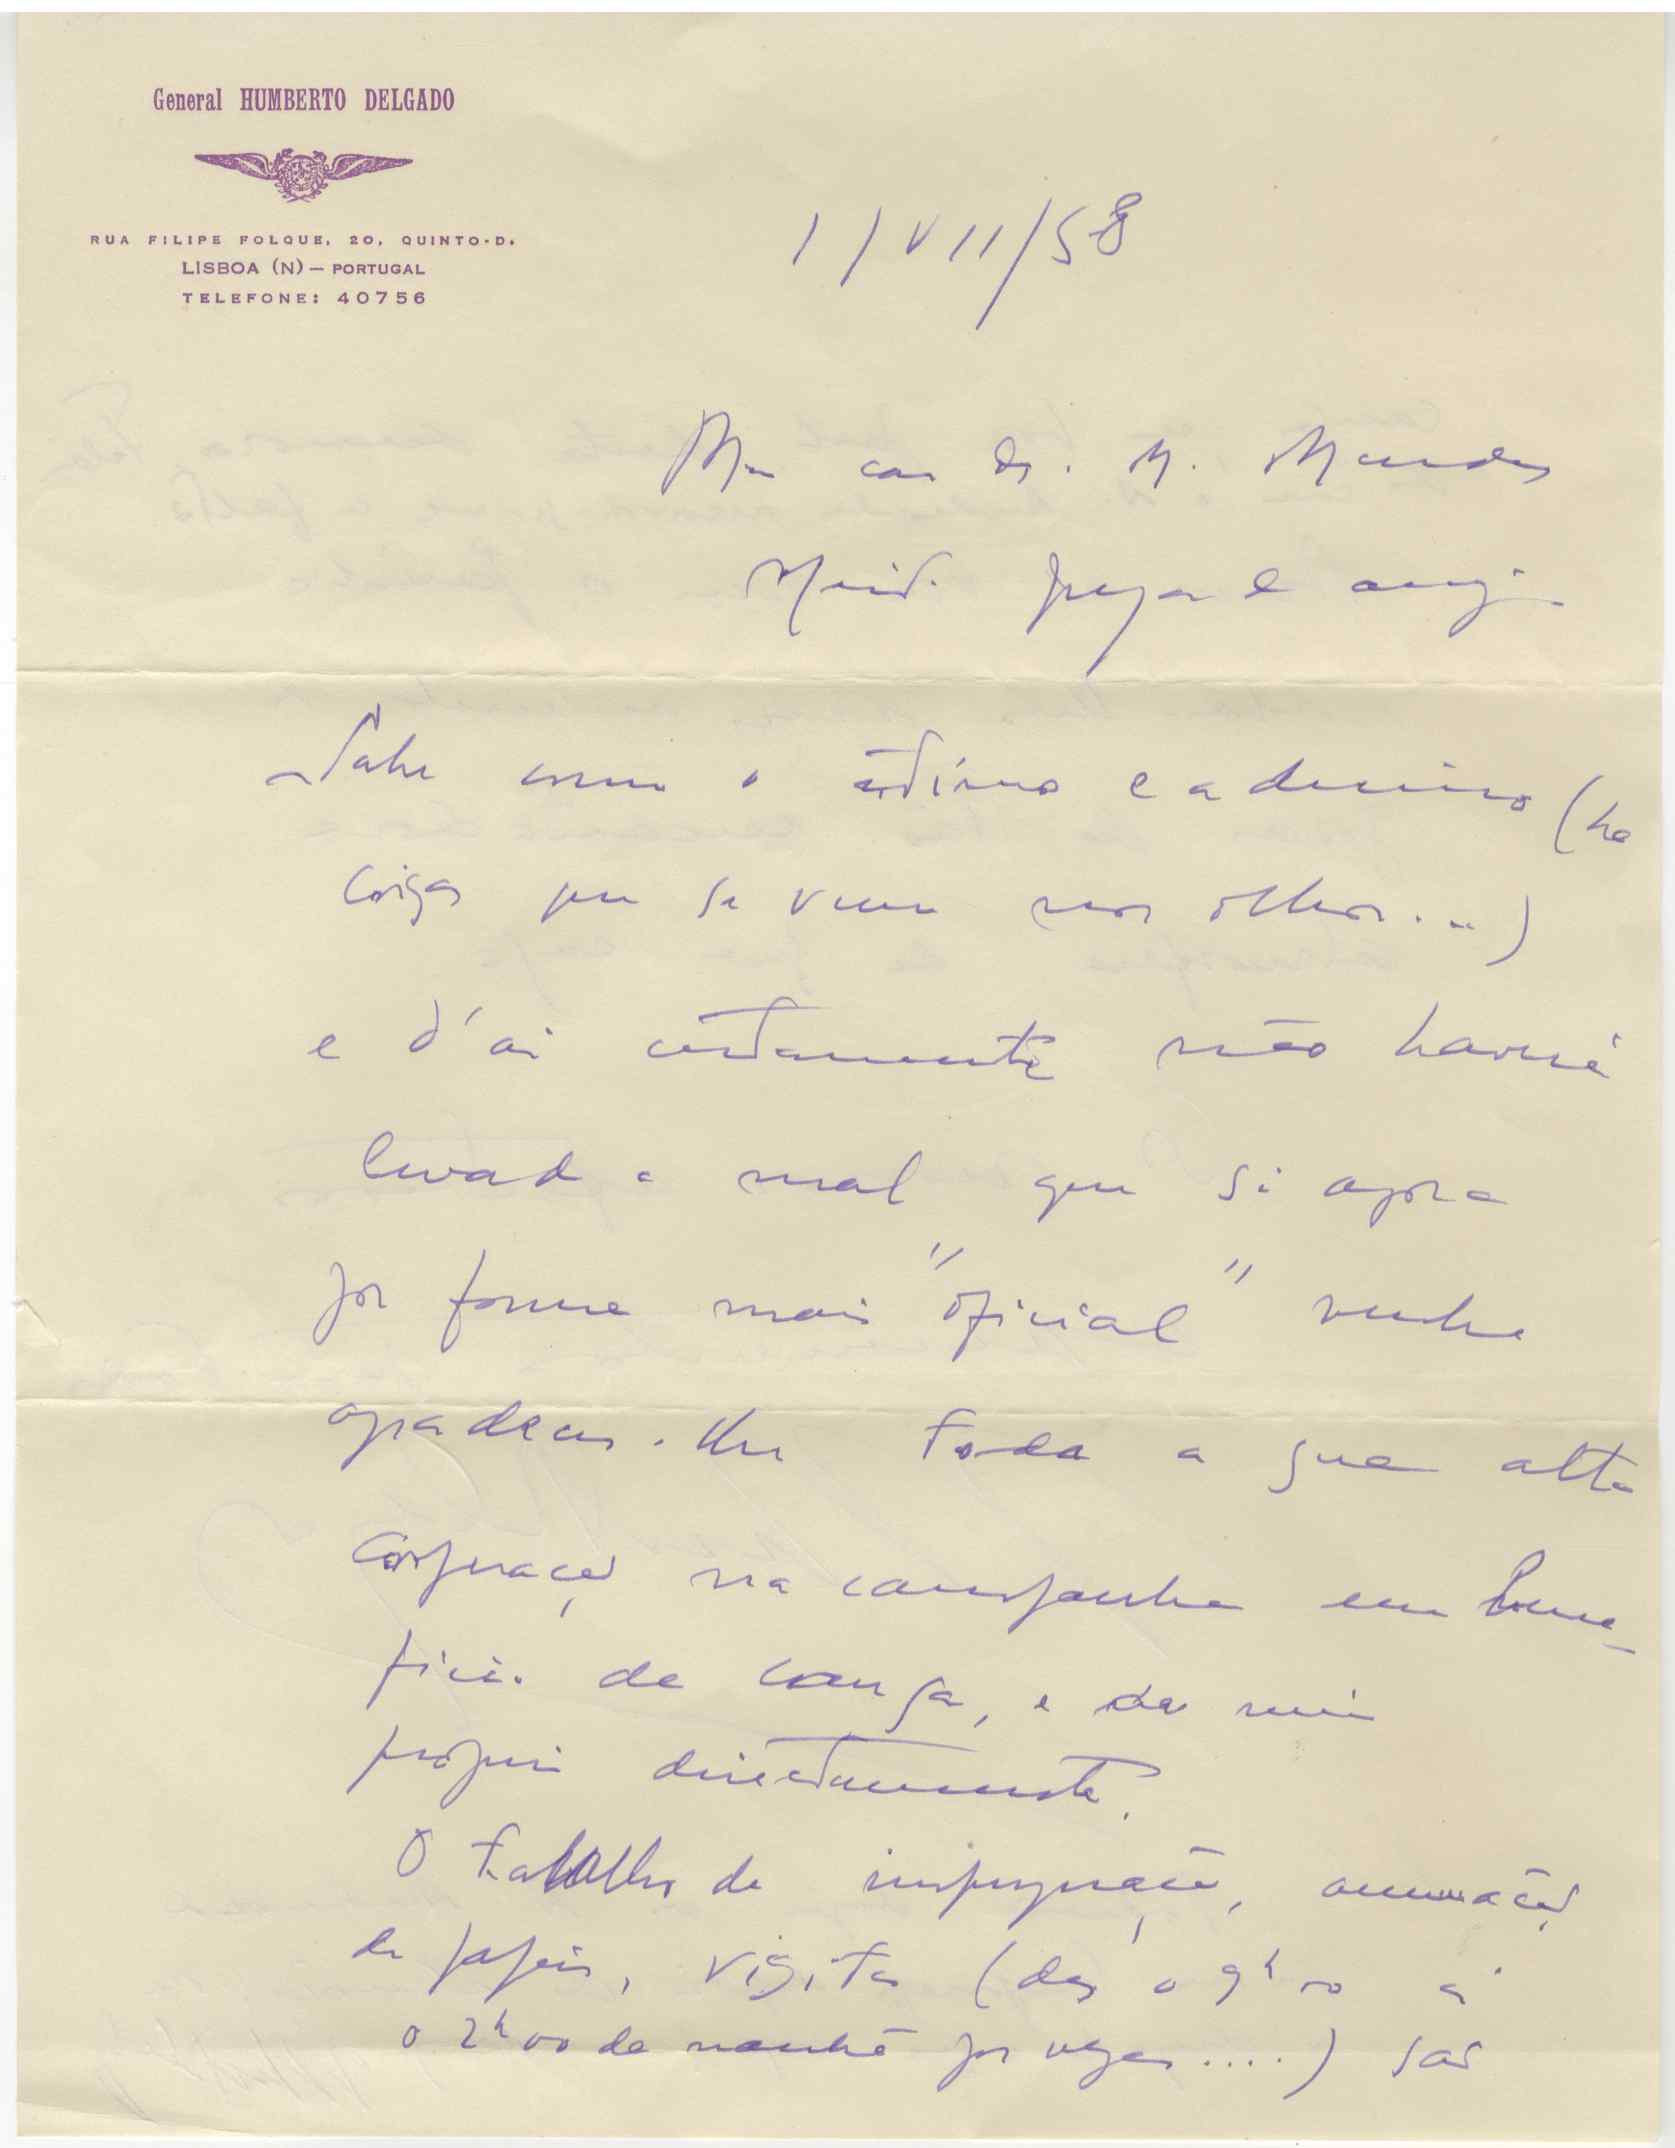 General HUMBERTO DELGADO
RUA FILIPE FOLQUE, 20, QUINTO-D.
LISBOA (N) — PORTUGAL
TELEFONE: 40756
1/VII/58
Meu caro Dr. M. Mendes
e amigo
Sabe como o estimo e admiro (há
coisas que se veem nos olhos...)
e d'aí certamente não haverá
levado a mal que só agora
por forma mais "oficial" venha
agradecer-lhe toda a sua alta
cooperação na campanha em bene-
fício da causa, e de mim
próprio directamente.
O trabalho de impugnação, arrumação
de papeis, visitas (das 09h00 às
02h00 da manhã por vezes....) são